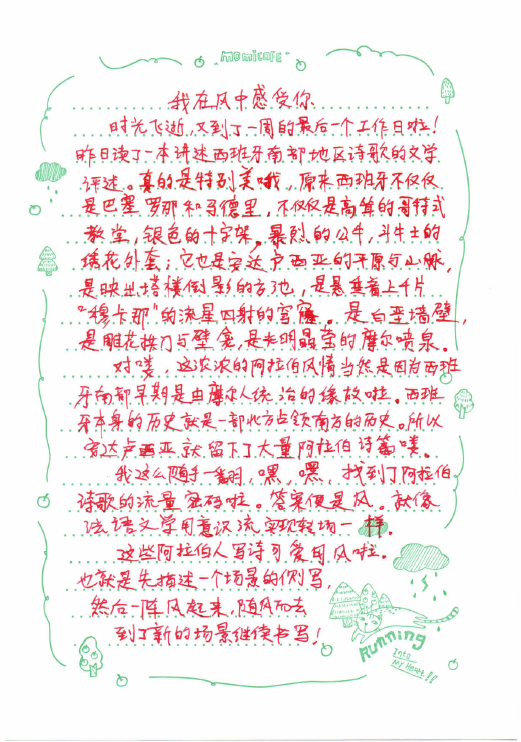 momicare
我在风中感受你
时光飞逝,又到了一周的最后一个工作日啦!
昨日读了一本讲述西班牙南部地区诗歌的文学
评述。真的是特别美哦,原来西班牙不仅仅
是巴塞罗那和马德里,不仅仅是高耸的哥特式
教堂,银色的十字架。暴烈的公牛,斗牛士的
绣花外套;它也是安达卢西亚的平原与山脉,
是映出塔楼倒影的方池,是悬垂着上千片
“穆卡那”的流星四射的穹窿。是白垩墙壁,
是雕花拱门与壁龛,是光明晶莹的摩尔喷泉。
对喽,这浓浓的阿拉伯风情当然是因为西班
牙南部早期是由摩尔人统治的缘故啦。西班
牙本身的历史就是一部北方占领南方的历史。所以
安达卢西亚就留下了大量阿拉伯诗篇喽。
我这么随手一翻,嘿,嘿,找到了阿拉伯
诗歌的流量密码啦。答案便是风。就像
法语文学用意识流实现转场一样。
这些阿拉伯人写诗可爱用风啦。
也就是先描述一个场景的侧写,
然后一阵风起来,随风而去
到了新的场景继续书写!
Running
Into
My Heart!!